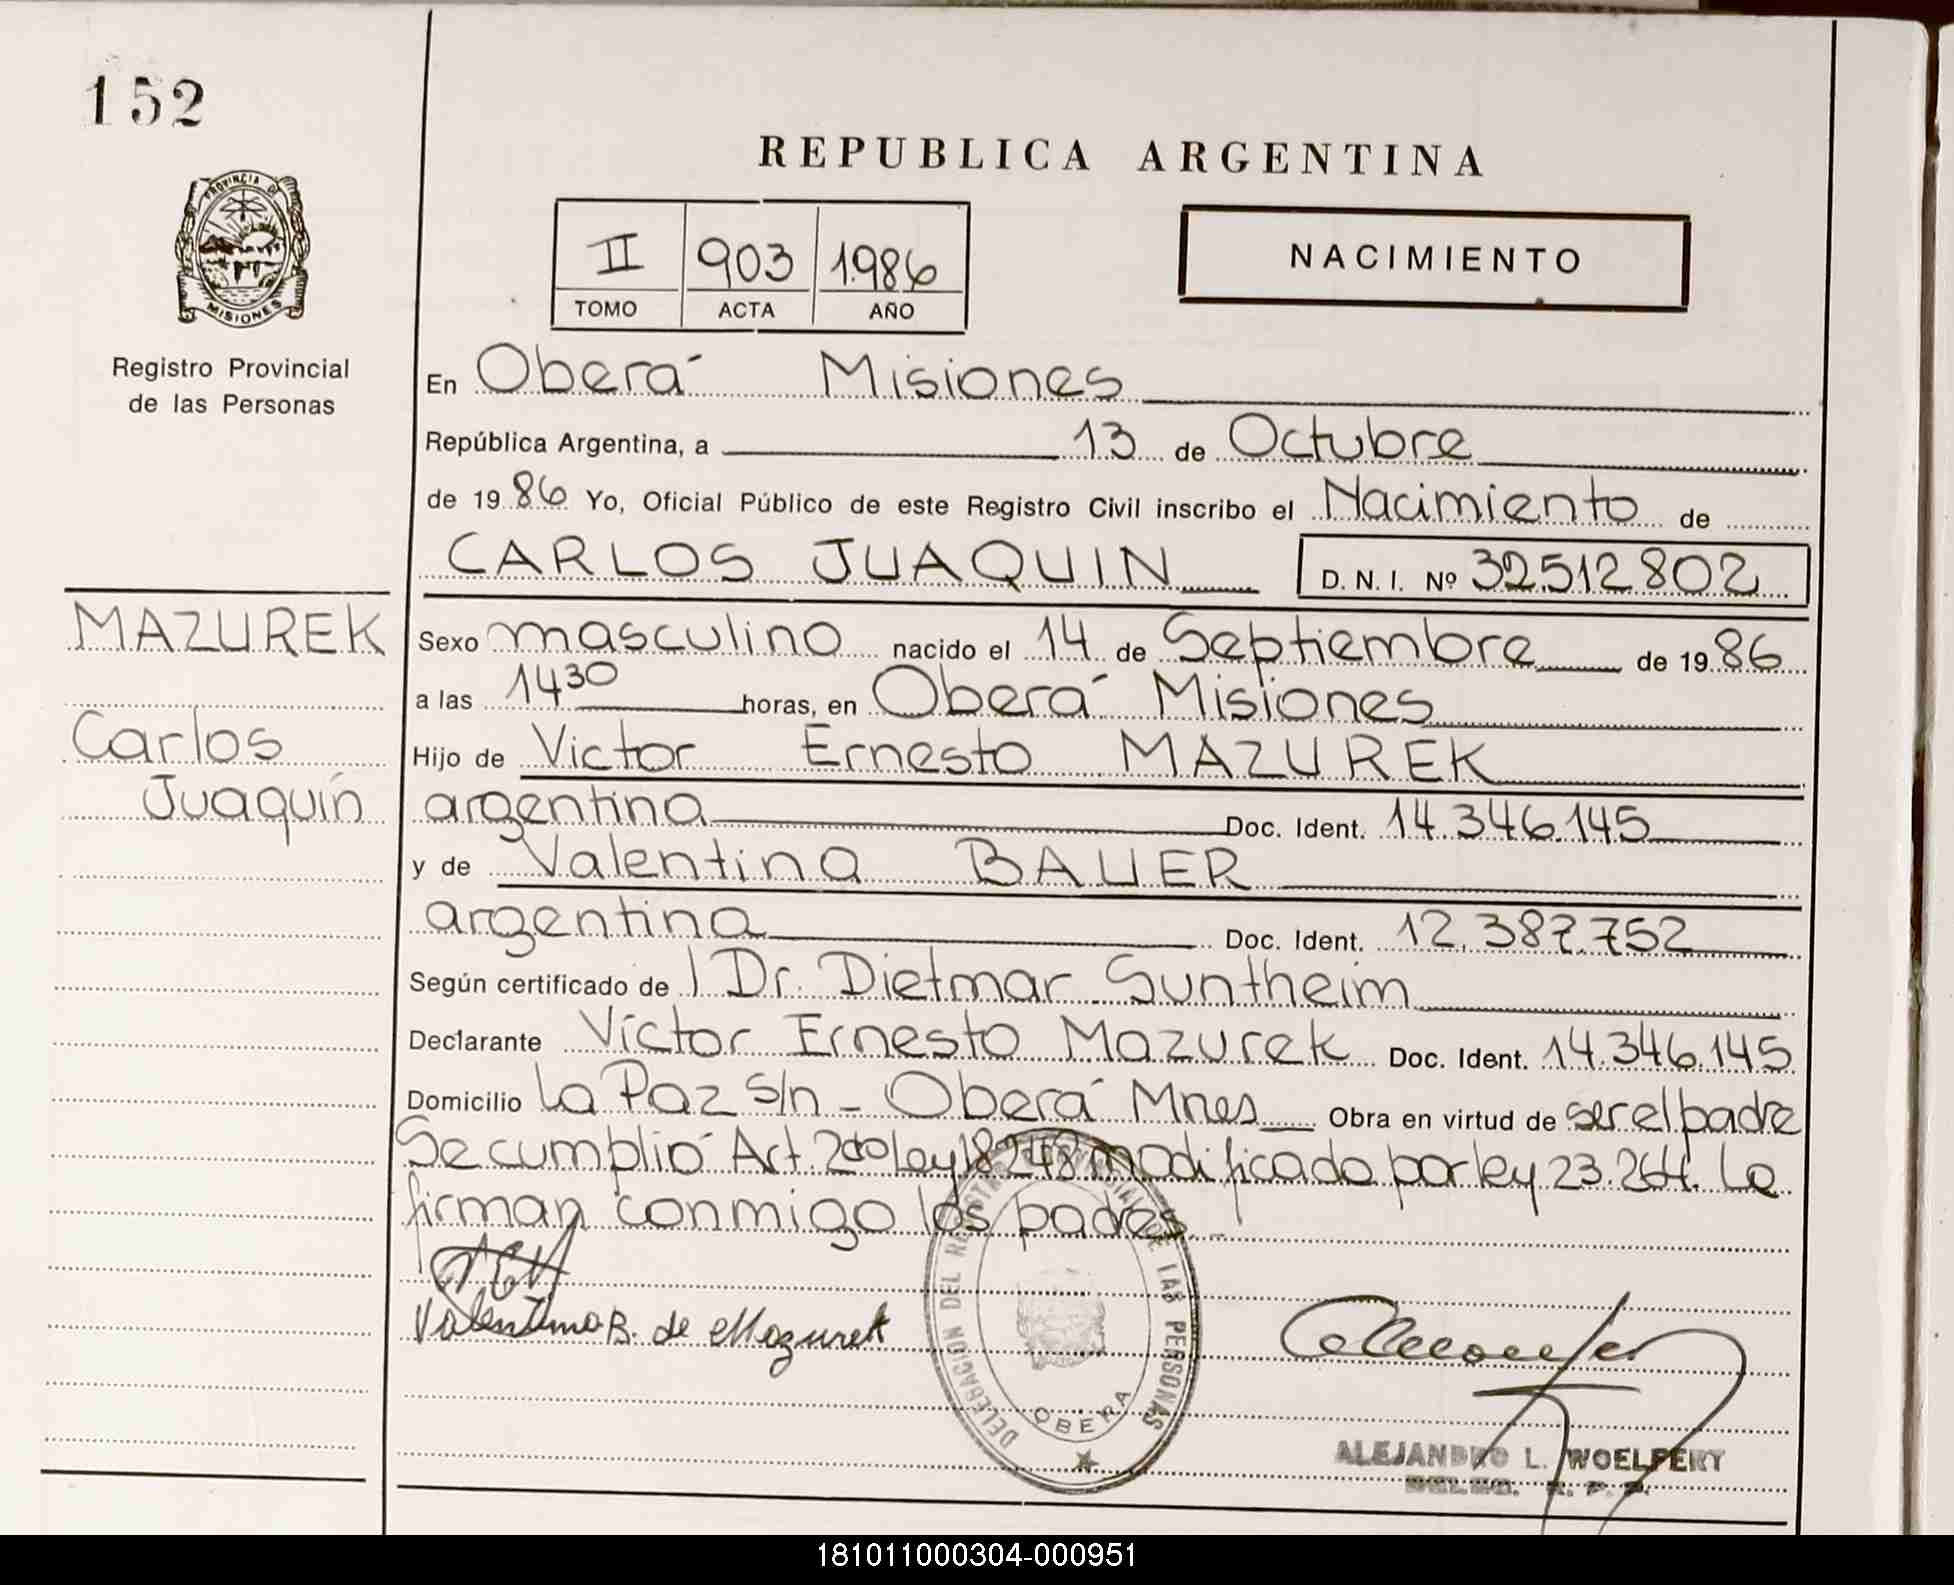 152
REPUBLICA ARGENTINA
PROVINCIA DE
MISIONES
Registro Provincial
de las Personas
II 903 1986
TOMO ACTA AÑO
NACIMIENTO
En Oberá Misiones
República Argentina, a 13 de Octubre
de 1986 Yo, Oficial Público de este Registro Civil inscribo el Nacimiento de
CARLOS JUAQUIN D.N.I. Nº 32.512.802
MAZUREK
Carlos
Juaquín
Sexo masculino nacido el 14 de Septiembre de 1986
a las 14 30 horas, en Oberá Misiones
Hijo de Victor Ernesto MAZUREK
argentina Doc. Ident. 14.346.145
y de Valentina BAUER
argentina Doc. Ident. 12.387.752
Según certificado de Dr. Dietmar Suntheim
Declarante Víctor Ernesto Mazurek Doc. Ident. 14.346.145
Domicilio La Paz S/n - Oberá Mnes Obra en virtud de ser el padre
Se cumplió Art. 2do ley 18248 modificada por ley 23.264. La
firman conmigo los padres.-
Valentina B. de Mazurek
DELEGACION DEL REGISTRO PROVINCIAL DE LAS PERSONAS
OBERA
ALEJANDRO L. WOELFERT
DELEG. R. P. P.
181011000304-000951